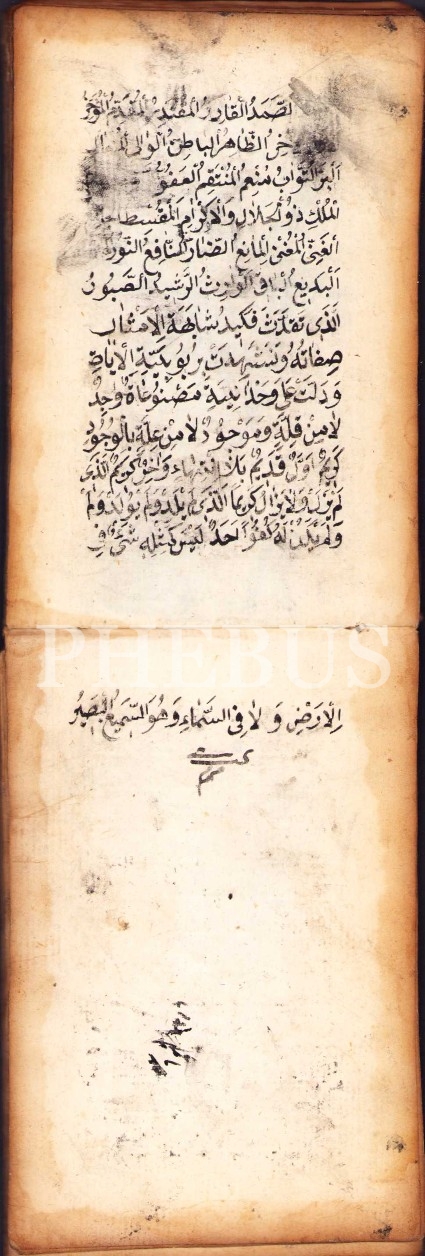 الصَّمَدُ الْقَادِرُ الْمُقْتَدِرُ الْمُقَدِّمُ الْمُؤَخِّرُ
خِرُ الظَّاهِرُ الْبَاطِنُ الْوَالِي
الْبَرُّ التَّوَّابُ مُنْعِمُ الْمُنْتَقِمُ الْعَفُوُّ
الْمُلْكِ ذُو الْجَلَالِ وَالْاِكْرَامِ الْمُقْسِطُ
الْغَنِيُّ الْمُغْنِي الْمَانِعُ الضَّارُّ النَّافِعُ النُّورُ
اَلْبَدِيعُ الْبَاقِي الْوَارِثُ الرَّشِيدُ الصَّبُورُ
الَّذِي تَقَدَّسَتْ الْاَمْثَالِ
صِفَاتُهُ بِرُبُوبِيَّتِهِ
وَدَلَّتْ عَلَى وَحْدَانِيَّتِهِ مَصْنُوعَاتُهُ وَاحِدٌ
لَا مِنْ قِلَّةٍ وَمَوْجُودٌ لَا مِنْ عِلَّةٍ بِالْجُودِ
اَوَّلٌ قَدِيمٌ بِلَا وَاٰخِرٌ كَرِيمٌ الَّذِي
لَمْ يَزَلْ وَلَا يَزَالُ كَرِيمًا الَّذِي لَمْ يَلِدْ وَلَمْ يُولَدْ وَلَمْ
وَلَمْ يَكُنْ لَهُ كُفُوًا اَحَدٌ لَيْسَ كَمِثْلِهِ شَيْءٌ فِي
PHEBUS
الْاَرْضِ وَلَا فِي السَّمَاءِ وَهُوَ السَّمِيعُ الْبَصِيرُ